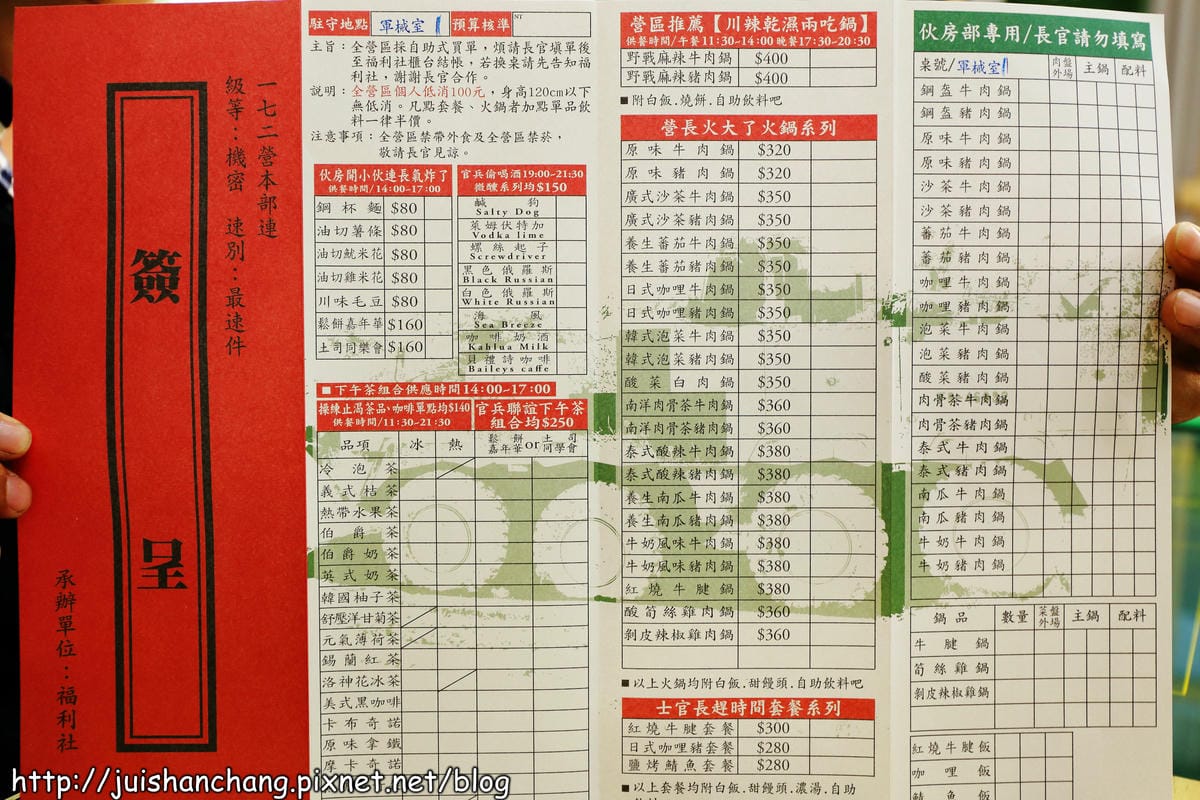 一七二營本部連
級等：機密 速別：最速件
簽
呈
承辦單位：福利社
駐守地點 軍械室 預算核準 NT
主旨：全營區採自助式買單，煩請長官填單後
至福利社櫃台結帳，若換桌請先告知福
利社，謝謝長官合作。
說明：全營區個人低消100元，身高120cm以下
無低消。凡點套餐、火鍋者加點單品飲
料一律半價。
注意事項：全營區禁帶外食及全營區禁菸，
敬請長官見諒。
伙房開小伙連長氣炸了
供餐時間/14:00~17:00
鋼杯麵 $80
油切薯條 $80
油切魷米花 $80
油切雞米花 $80
川味毛豆 $80
鬆餅嘉年華 $160
土司同樂會 $160
官兵偷喝酒19:00~21:30
微醺系列均$150
鹹狗
Salty Dog
萊姆伏特加
Vodka lime
螺絲起子
Screwdriver
黑色俄羅斯
Black Russian
白色俄羅斯
White Russian
海風
Sea Breeze
咖啡奶酒
Kahlua Milk
貝禮詩咖啡
Baileys caffe
■下午茶組合供應時間14:00~17:00
操練止渴茶品、咖啡單點均$140
供餐時間/11:30~21:30
官兵聯誼下午茶
組合均$250
品項 冰 熱 鬆餅嘉年華 or 土司同學會
冷泡茶
義式桔茶
熱帶水果茶
伯爵茶
伯爵奶茶
英式奶茶
韓國柚子茶
舒壓洋甘菊茶
元氣薄荷茶
錫蘭紅茶
洛神花冰茶
美式黑咖啡
卡布奇諾
原味拿鐵
摩卡奇諾
營區推薦【川辣乾濕兩吃鍋】
供餐時間/午餐11:30~14:00 晚餐17:30~20:30
野戰麻辣牛肉鍋 $400
野戰麻辣豬肉鍋 $400
■附白飯.燒餅.自助飲料吧
營長火大了火鍋系列
原味牛肉鍋 $320
原味豬肉鍋 $320
廣式沙茶牛肉鍋 $350
廣式沙茶豬肉鍋 $350
養生蕃茄牛肉鍋 $350
養生蕃茄豬肉鍋 $350
日式咖哩牛肉鍋 $350
日式咖哩豬肉鍋 $350
韓式泡菜牛肉鍋 $350
韓式泡菜豬肉鍋 $350
酸菜白肉鍋 $350
南洋肉骨茶牛肉鍋 $360
南洋肉骨茶豬肉鍋 $360
泰式酸辣牛肉鍋 $380
泰式酸辣豬肉鍋 $380
養生南瓜牛肉鍋 $380
養生南瓜豬肉鍋 $380
牛奶風味牛肉鍋 $380
牛奶風味豬肉鍋 $380
紅燒牛腱鍋 $380
酸筍絲雞肉鍋 $360
剝皮辣椒雞肉鍋 $360
■以上火鍋均附白飯.甜饅頭.自助飲料吧
士官長趕時間套餐系列
紅燒牛腱套餐 $300
日式咖哩豬套餐 $280
鹽烤鯖魚套餐 $280
■以上套餐均附白飯.甜饅頭.濃湯.自助
伙房部專用/長官請勿填寫
桌號/軍械室 肉盤外場 主鍋 配料
鋼盔牛肉鍋
鋼盔豬肉鍋
原味牛肉鍋
原味豬肉鍋
沙茶牛肉鍋
沙茶豬肉鍋
蕃茄牛肉鍋
蕃茄豬肉鍋
咖哩牛肉鍋
咖哩豬肉鍋
泡菜牛肉鍋
泡菜豬肉鍋
酸菜豬肉鍋
肉骨茶牛肉鍋
肉骨茶豬肉鍋
泰式牛肉鍋
泰式豬肉鍋
南瓜牛肉鍋
南瓜豬肉鍋
牛奶牛肉鍋
牛奶豬肉鍋
鍋品 數量 菜盤外場 主鍋 配料
牛腱鍋
筍絲雞鍋
剝皮辣椒雞鍋
紅燒牛腱飯
咖哩飯
鯖魚飯
http://juishanchang.pixnet.net/blog